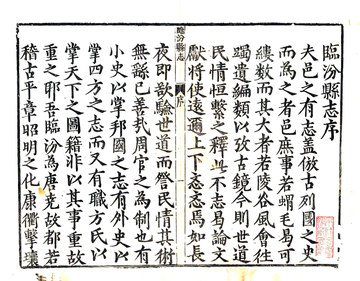 臨汾縣志序
夫邑之有志蓋倣古列國之史
而為之者邑庶事若蝟毛易可
縷數而其大者若陵谷風會往
躅遺編類以攷古鏡今則世道
民情恒繫之釋此不志易論文
獻將使遠邇上下忞忞焉如長
夜即欲驗世道而警民情其術
無繇已善哉周官之為制也有
小史以掌邦國之志有外史以
掌四方之志而又有職方氏以
掌天下之圖籍非以其事重故
重之耶吾臨汾為唐堯故都若
稽古平章昭明之化康衢擊壤
臨汾縣志
序
一